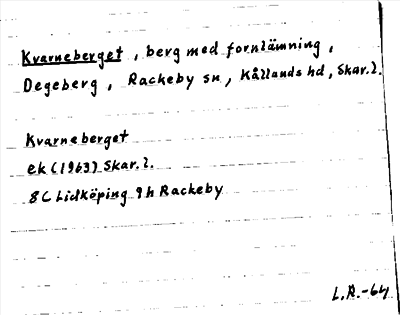 Kvarneberget, berg med fornlämning,
Degeberg, Rackeby sn, Kållands hd, Skar.l.
Kvarneberget
ek (1963) Skar.l.
8C Lidköping 9h Rackeby
L.R.-64